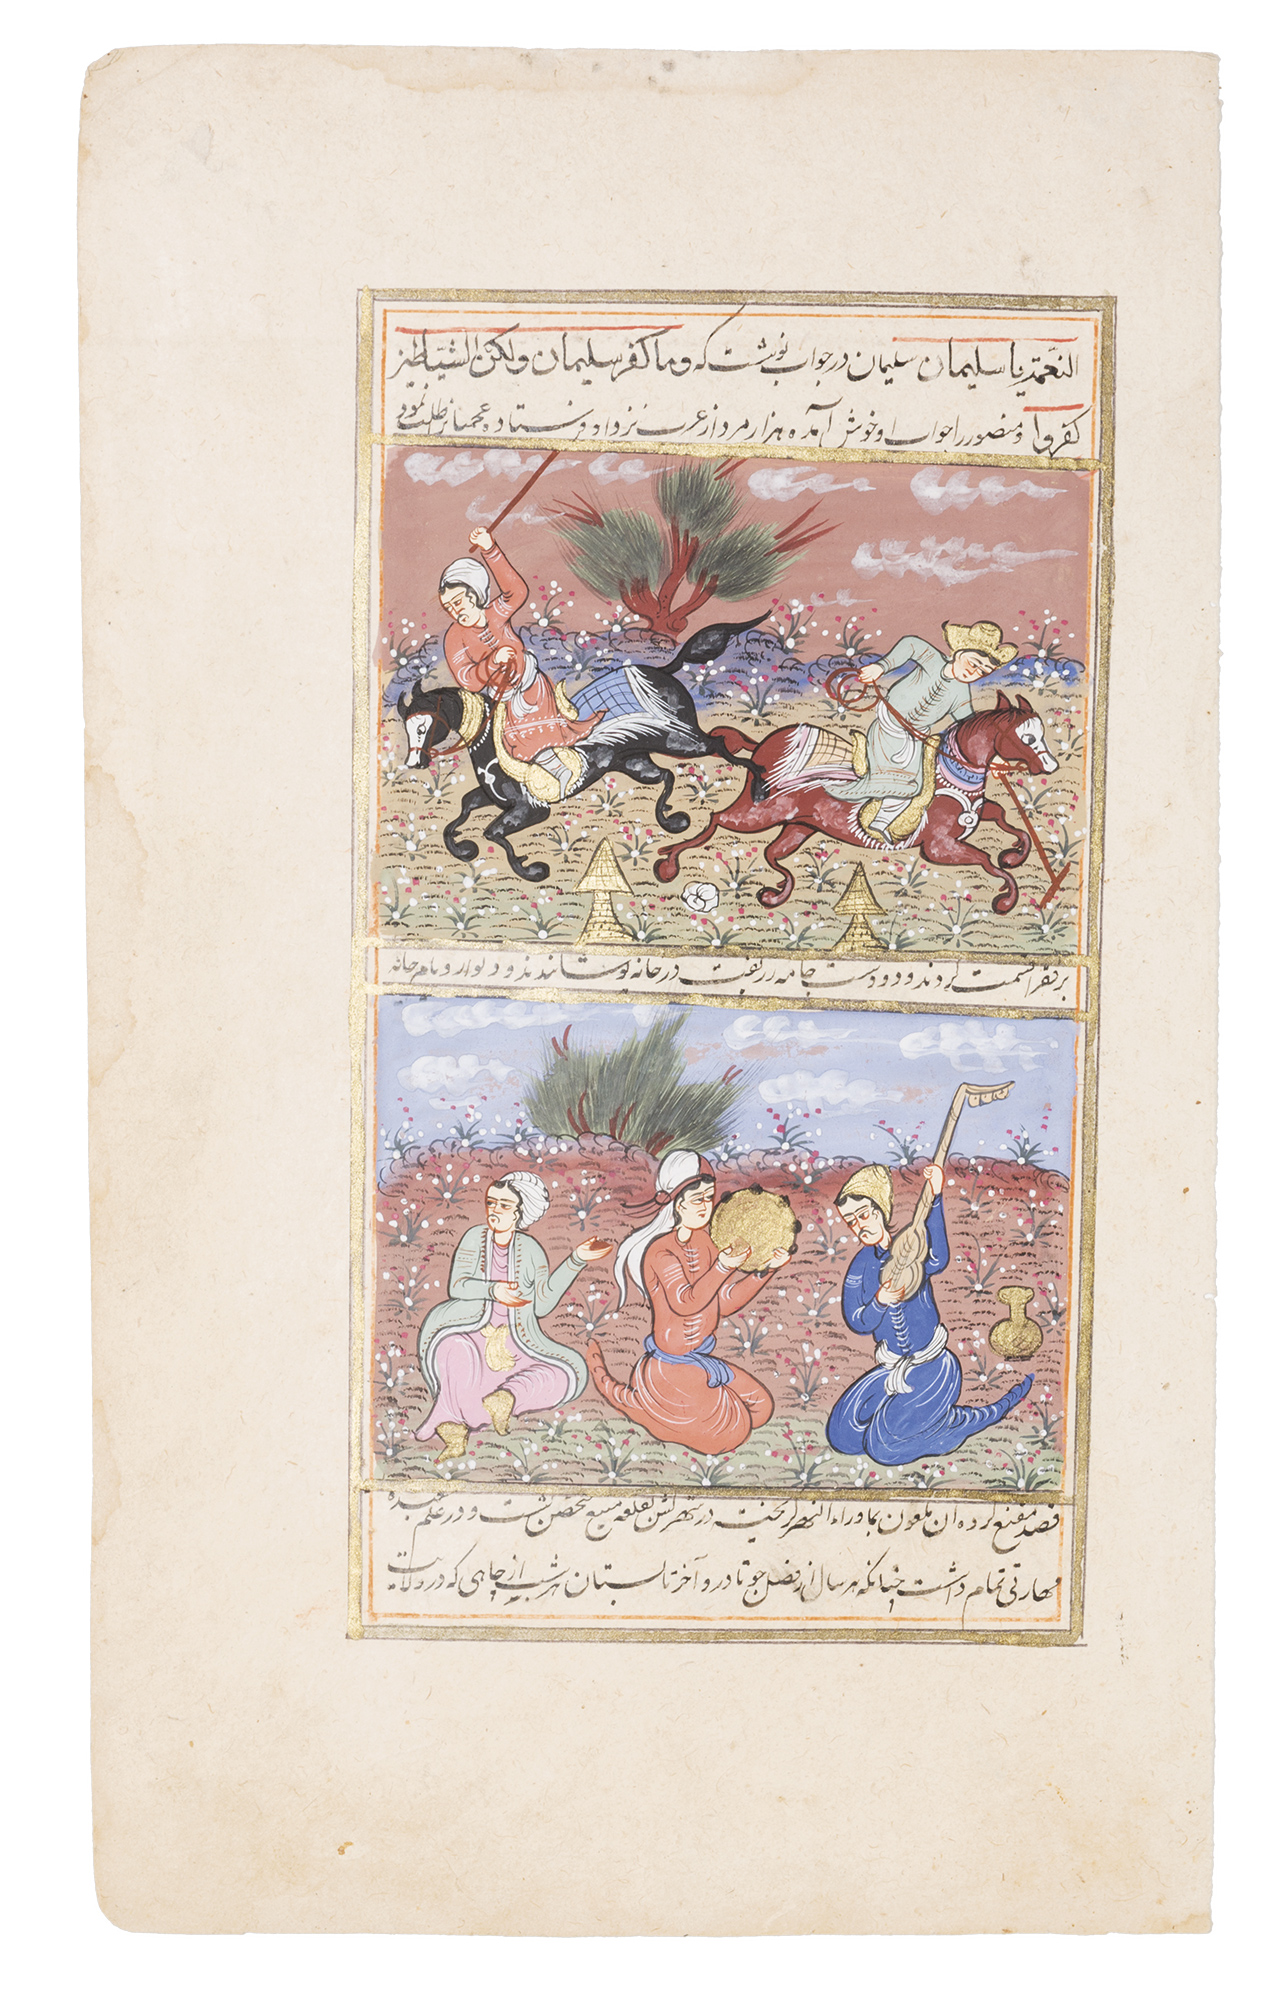 النعمة یا سلیمان سلیمان در جواب نوشت که وما کفر سلیمان ولکن الشیاطین
کفروا و منصور را جواب او خوش آمده هزار مرد از عرب نزد او فرستاده عجمیان طلب نمود
بر فقرا قسمت کردند و دو دست جامه زربفت در خانه پوشانندند و دیوار و بام خانه
قصد مقنع کرده آن ملعون بماوراء النهر گریخت در شهر کش بقلعه منیع متحصن نشست و در علم شعبده
مهارتی تمام داشت چنانکه هر سال از فصل جوتا در و آخر تابستان هر شب از چاهی که در ولایت